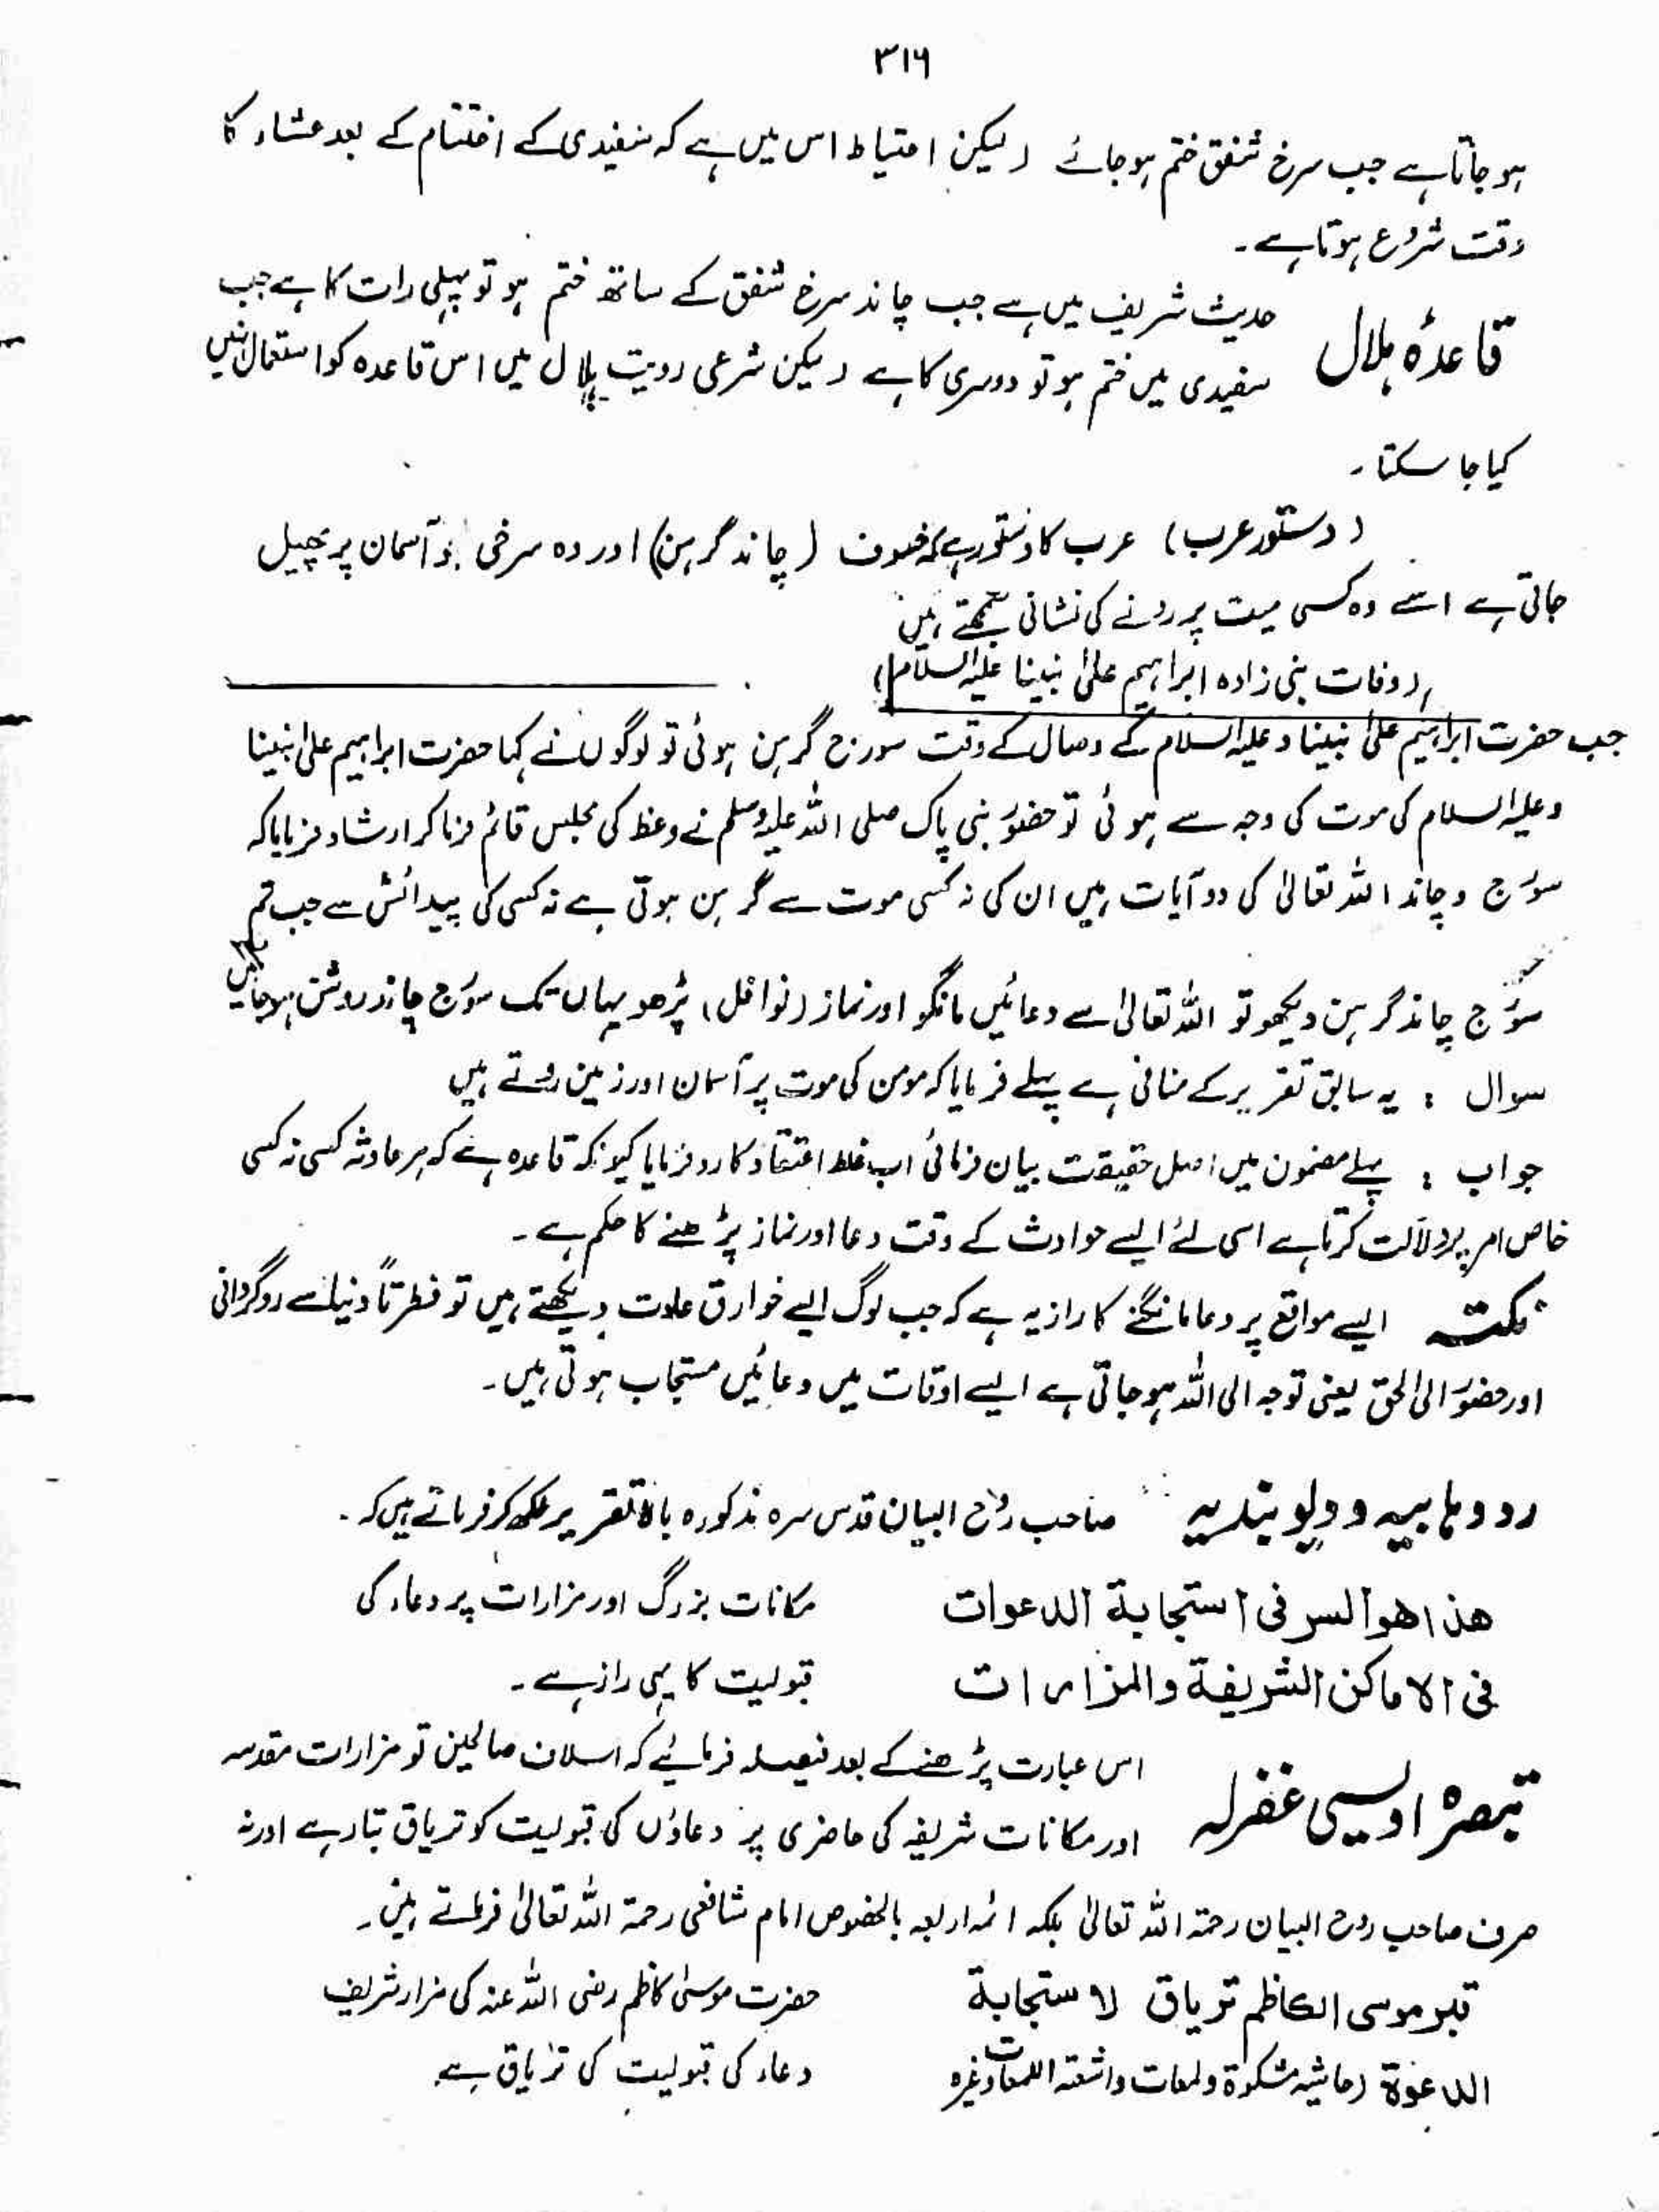 ۳۱۶
ہو جاتا ہے جب سرخ شفق ختم ہو جائے (لیکن احتیاط اس میں ہے کہ سفیدی کے اختتام کے بعد عشاء کا
وقت شروع ہوتا ہے۔
قاعدۂ ہلال
حدیث شریف میں ہے جب چاند سرخ شفق کے ساتھ ختم ہو تو پہلی رات کا ہے جب
سفیدی میں ختم ہو تو دوسری کا ہے (لیکن شرعی رویت ہلال میں اس قاعدہ کو استعمال نہیں
کیا جا سکتا۔
(دستور عرب) عرب کا دستور ہے کہ خسوف (چاند گرہن) اور وہ سرخی جو آسمان پر پھیل
جاتی ہے اسے وہ کسی میت پر رونے کی نشانی سمجھتے ہیں
(وفات نبی زادہ ابراہیم علیٰ نبینا علیہ السلام)
جب حضرت ابراہیم علیٰ نبینا و علیہ السلام کے وصال کے وقت سورج گرہن ہوئی تو لوگوں نے کہا حضرت ابراہیم علیٰ نبینا
وعلیہ السلام کی موت کی وجہ سے ہوئی تو حضور نبی پاک صلی اللہ علیہ وسلم نے وعظ کی مجلس قائم فرما کر ارشاد فرمایا کہ
سورج و چاند اللہ تعالیٰ کی دو آیات ہیں ان کی نہ کسی موت سے گرہن ہوتی ہے نہ کسی کی پیدائش سے جب تم
سورج چاند گرہن دیکھو تو اللہ تعالیٰ سے دعائیں مانگو اور نماز (نوافل) پڑھو یہاں تک سورج چاند روشن ہو جائیں
سوال : یہ سابق تقریر کے منافی ہے پہلے فرمایا کہ مومن کی موت پر آسمان اور زمین روتے ہیں
جواب : پہلے مضمون میں اصل حقیقت بیان فرمائی اب غلط اعتقاد کا رد فرمایا کیونکہ قاعدہ ہے کہ ہر حادثہ کسی نہ کسی
خاص امر پر دلالت کرتا ہے اسی لئے ایسے حوادث کے وقت دعا اور نماز پڑھنے کا حکم ہے۔
نکتہ ایسے مواقع پر دعا مانگنے کا راز یہ ہے کہ جب لوگ ایسے خوارق عادت دیکھتے ہیں تو فطرتاً دنیا سے روگردانی
اور حضور الی الحق یعنی توجہ الی اللہ ہو جاتی ہے ایسے اوقات میں دعائیں مستجاب ہوتی ہیں۔
رد وہابیہ و دیوبندیہ صاحب روح البیان قدس سرہ مذکورہ بالا تقریر لکھ کر فرماتے ہیں کہ۔
هذا هو السر فی استجابة الدعوات
فی الاماکن الشریفة والمزارات
مکانات بزرگ اور مزارات پر دعاء کی
قبولیت کا یہی راز ہے۔
تبصرہ اویسی غفرلہ
اس عبارت پڑھنے کے بعد فیصلہ فرمائیے کہ اسلاف صالحین تو مزارات مقدسہ
اور مکانات شریفہ کی حاضری پر دعاؤں کی قبولیت کو تریاق بتا رہے اور نہ
صرف صاحب روح البیان رحمۃ اللہ تعالیٰ بلکہ ائمہ اربعہ بالخصوص امام شافعی رحمۃ اللہ تعالیٰ فرماتے ہیں۔
قبر موسی الکاظم تریاق لاستجابة
الدعوة (حاشیہ مشکوۃ ولمعات واشعۃ اللمعات وغیرہ
حضرت موسیٰ کاظم رضی اللہ عنہ کی مزار شریف
دعاء کی قبولیت کی تریاق ہے۔